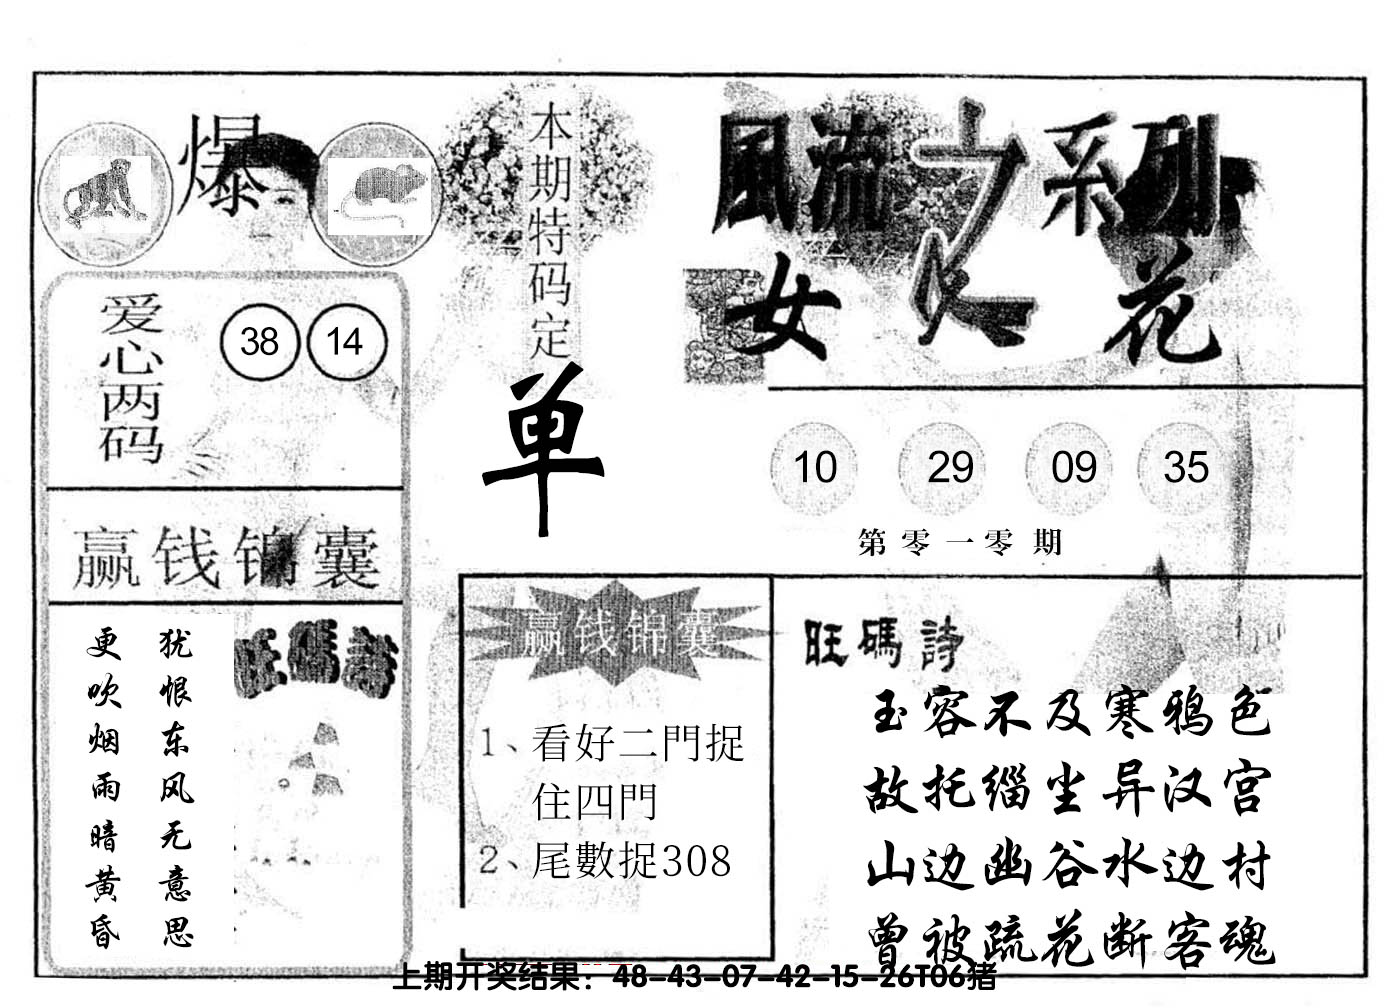 爆
爱心两码
38 14
赢钱锦囊
犹恨东风无意思
更吹烟雨暗黄昏
旺碼詩
本期特码定
单
風流之系列
女人花
10 29 09 35
第零一零期
赢钱锦囊
1、看好二門捉
住四門
2、尾數捉308
旺碼詩
玉容不及寒鸦色
故托缁尘异汉宫
山边幽谷水边村
曾被疏花断客魂
上期开奖结果：48-43-07-42-15-26T06猪